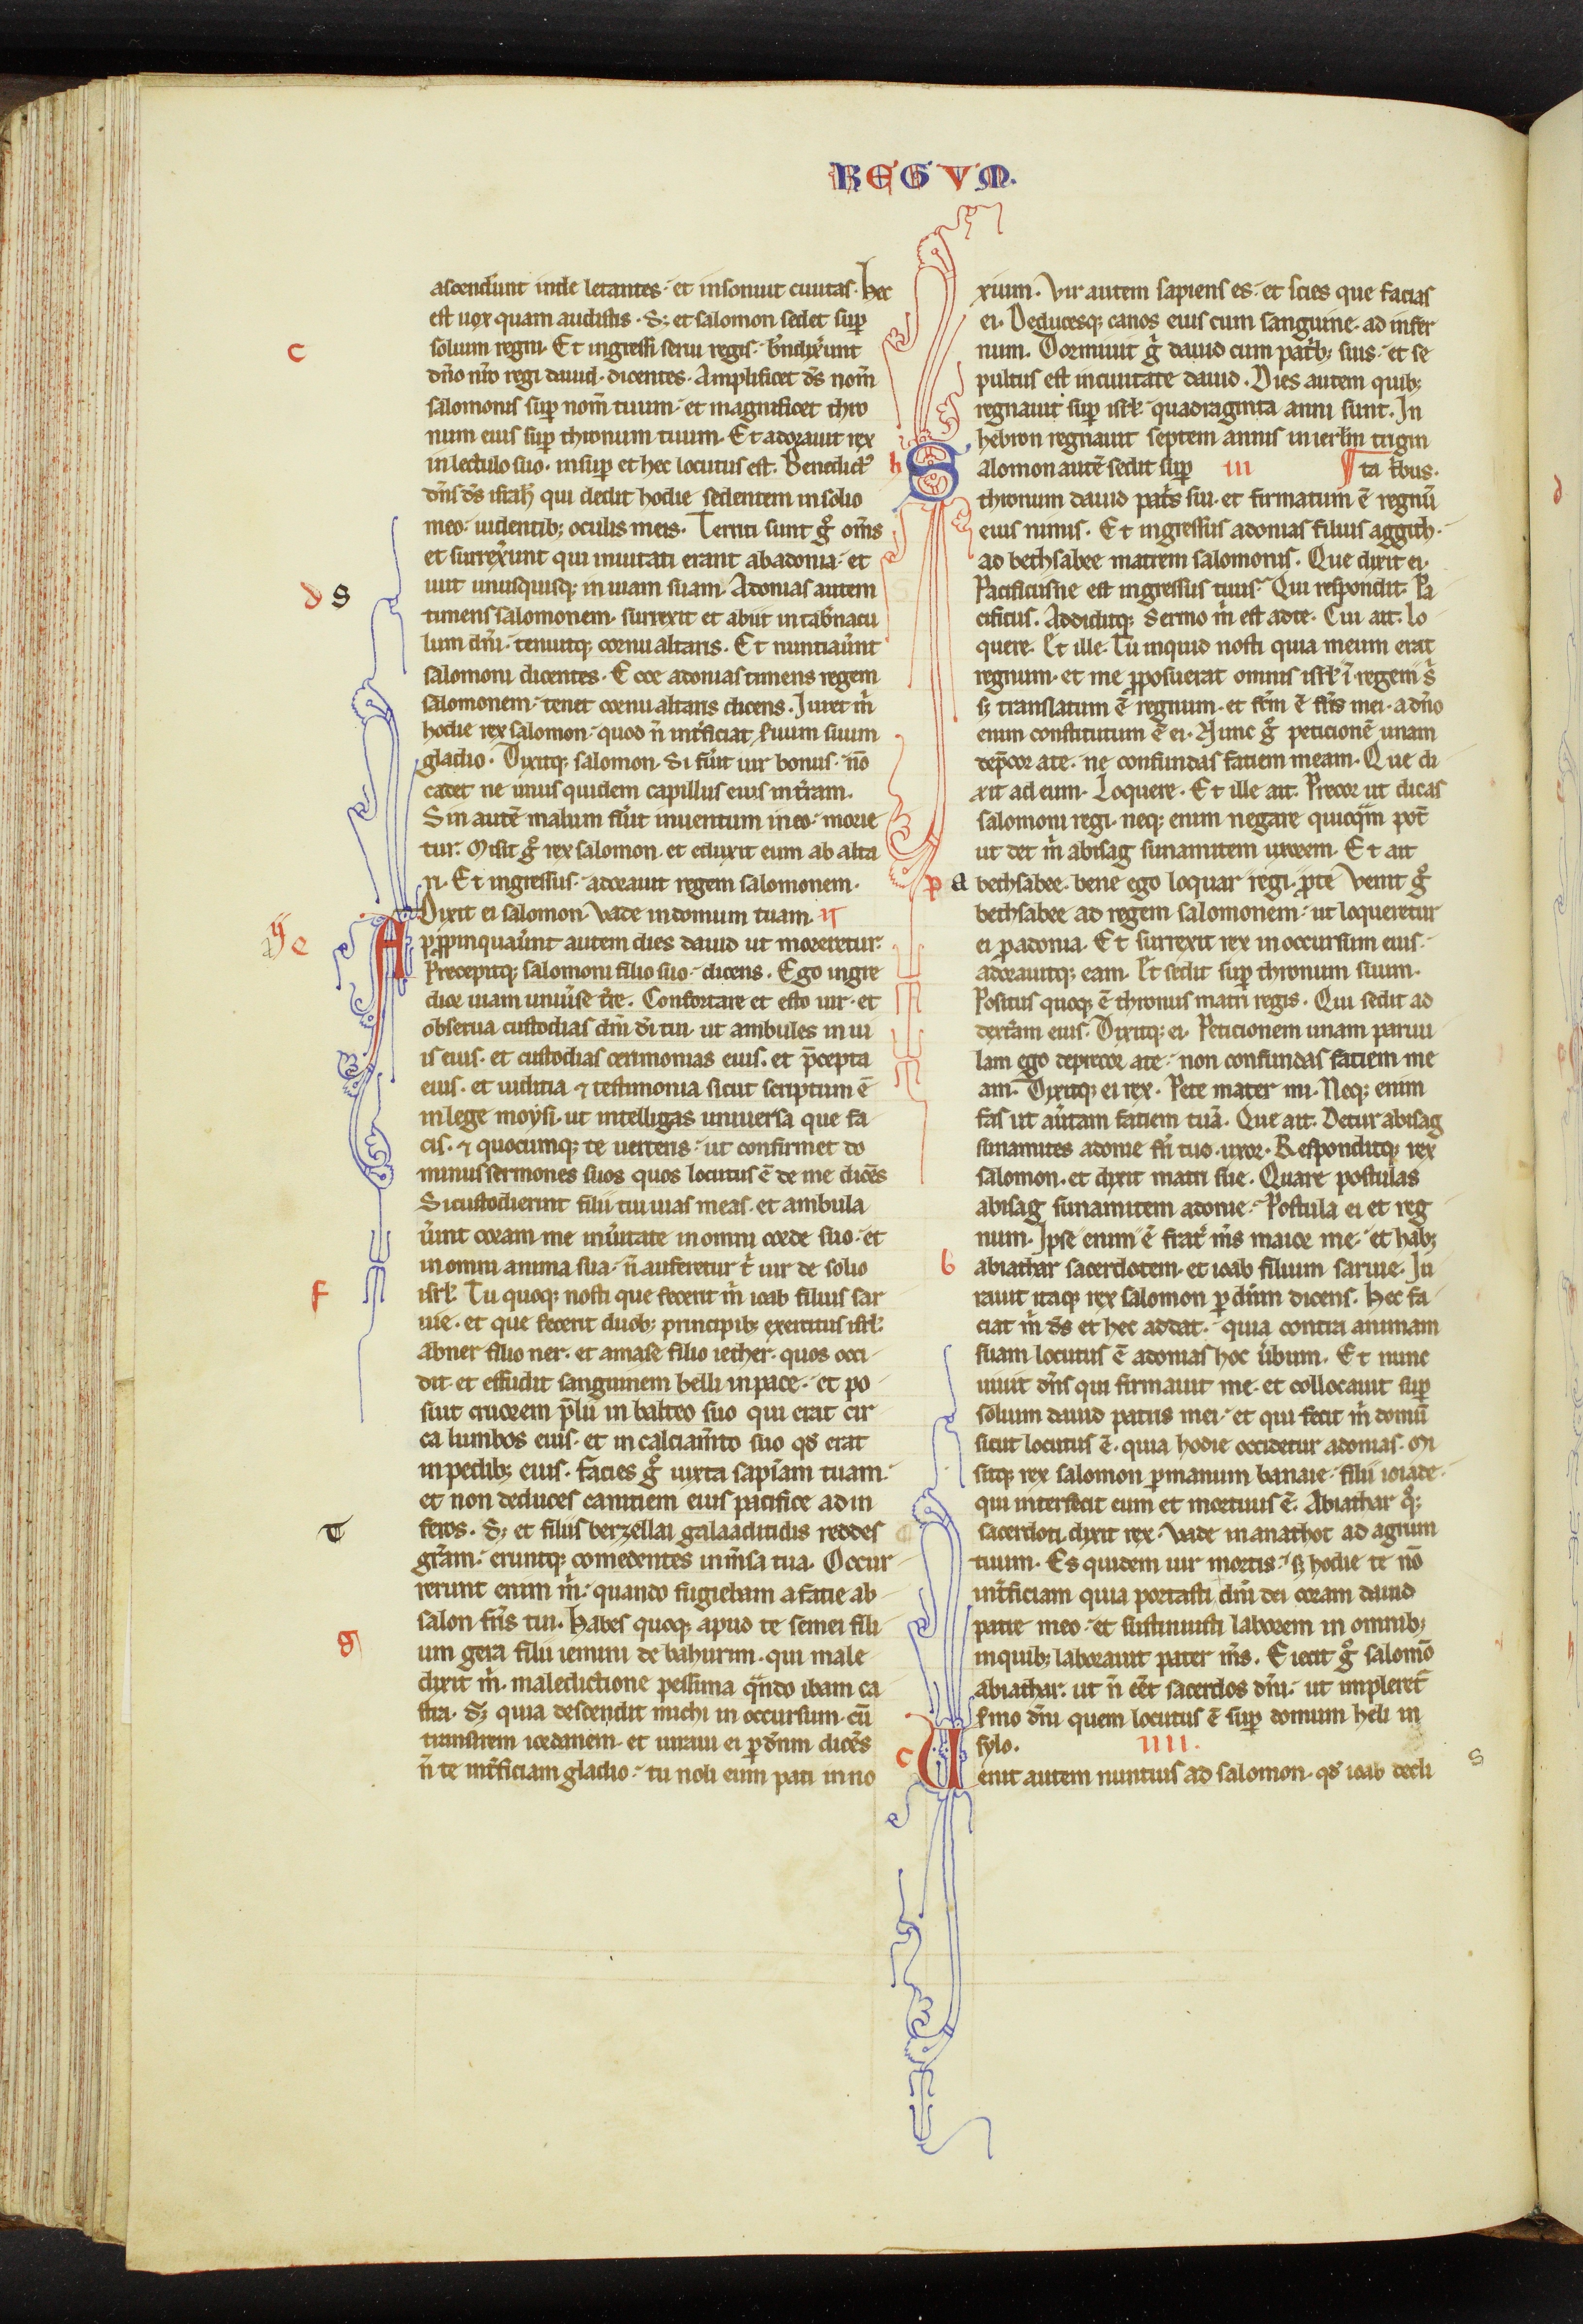 REGVM.
ascenderunt inde letantes· et insonuit ciuitas. Hec
est uox quam audistis. S; et salomon sedet sup̄
solium regni. Et ingressi serui regis· bn̄dix̄unt
dn̄o nr̄o regi dauid. dicentes. Amplificet ds̄ nom̄
salomonis sup̄ nom̄ tuum· et magnificet thro
num eius sup̄ thronum tuum. Et adorauit rex
in lectulo suo. insup̄ et hec locutus est. Benedict᷒
dn̄s ds̄ isrl̄ qui dedit hodie sedentem in solio
meo· uidentib; oculis meis. Territi sunt gͦ om̄s
et surrex̄unt qui inuitati erant ab adonia· et
iuit unusquisq; in uiam suam. Adonias autem
timens salomonem. surrexit et abiit in tab̄nacu
lum dn̄i· tenuitq; cornu altaris. Et nuntiaūnt
salomoni dicentes. Ecce adonias timens regem
salomonem· tenet cornu altaris dicens. Iuret m̄
hodie rex salomon· quod n̄ int̄ficiat s̄uum suum
gladio. Dixitq; salomon. Si fūit uir bonus· nō
cadet ne unus quidem capillus eius in t̄ram.
Sin autē malum fūit inuentum in eo· morie
tur. Misit gͦ rex salomon. et eduxit eum ab alta
ri. Et ingressus· adorauit regem salomonem.
Dixit ei salomon. Vade in domum tuam. II
Appropinquaūnt autem dies dauid ut moreretur·
Precepitq; salomoni filio suo· dicens. Ego ingre
dior uiam uniūse t̄re. Confortare et esto uir· et
obserua custodias dn̄i dī tui. ut ambules in ui
is eius. et custodias cerimonias eius. et p̄cepta
eius. et iudicia ⁊ testimonia sicut scriptum ē
in lege moysi. ut intelligas uniuersa que fa
cis. ⁊ quocumq; te uerteris· ut confirmet do
minus sermones suos quos locutus ē de me dicēs
Si custodierint filii tui uias meas. et ambula
ūint coram me in ūitate in omni corde suo· et
in omni anima sua· n̄ auferetur t̄ uir de solio
isrl̄. Tu quoq; nosti que fecerit m̄ ioab filius sar
uie. et que fecerit duob; principib; exercitus isrl̄.
abner filio ner. et amase filio iether. quos occi
dit· et effudit sanguinem belli in pace· et po
suit cruorem p̄lii in balteo suo qui erat cir
ca lumbos eius. et in calciam̄to suo qd̄ erat
in pedib; eius. facies gͦ iuxta sapīam tuam·
et non deduces canitiem eius pacifice ad in
feros. S; et filiis berzellai galaaditidis reddes
gr̄am· eruntq; comedentes in m̄sa tua. Occur
rerunt enim m̄· quando fugiebam a facie ab
salon fr̄is tui. Habes quoq; apud te semei fili
um gera filii iemini de bahurim. qui male
dixit m̄. maledictione pessima qn̄do ibam ca
stra. S; quia descendit michi in occursum. cū
transirem iordanem. et iuraui ei p̄ dn̄m dicēs
n̄ te int̄ficiam gladio· tu noli eum pati inno
xium. Vir autem sapiens es· et scies que facias
ei. Deducesq; canos eius cum sanguine. ad infer
num. Dormiuit gͦ dauid cum pat̄b; suis· et se
pultus est in ciuitate dauid. Dies autem quib;
regnauit sup̄ isrl̄· quadraginta anni sunt. In
hebron regnauit septem annis in ierl̄m trigin
Salomon autē sedit sup̄ III ta t̄bus.
thronum dauid pat̄s sui. et firmatum ē regnū
eius nimis. Et ingressus adonias filius aggith·
ad bethsabee matrem salomonis. Que dixit ei.
Pacificusne est ingressus tuus· Qui respondit. Pa
cificus. Addiditq; sermo m̄ est ad te. Cui ait. Lo
quere. Et ille. Tu inquid nosti quia meum erat
regnum. et me p̄posuerat omnis isrl̄ ī regem s̄
s; translatum ē regnum. et fc̄m ē fr̄is mei. a dn̄o
enim constitutum ē ei. Nunc gͦ peticionē unam
dep̄cor a te. ne confundas faciem meam. Que di
xit ad eum. Loquere. Et ille ait. Precor ut dicas
salomoni regi. neq; enim negare quicq̄m pot̄
ut det m̄ abisag sunamitem uxorem. Et ait
bethsabee. bene ego loquar regi. p̄ te Venit gͦ
bethsabee ad regem salomonem· ut loqueretur
ei p̄ adonia. Et surrexit rex in occursum eius·
adorauitq; eam. Et sedit sup̄ thronum suum.
Positus quoq; ē thronus matri regis. Qui sedit ad
dext̄am eius. Dixitq; ei. Peticionem unam paruu
lam ego deprecor a te· non confundas faciem me
am. Dixitq; ei rex. Pete mater mi. Neq; enim
fas ut aūtam faciem tuā. Que ait. Detur abisag
sunamites adonie fr̄i tuo. uxor. Responditq; rex
salomon. et dixit matri sue. Quare postulas
abisag sunamitem adonie· Postula ei et reg
num. Ipse enim ē frat̄ m̄s maior me· et hab;
abiathar sacerdotem. et ioab filium saruie. Iu
rauit itaq; rex salomon p̄ dn̄m dicens. Hec fa
ciat m̄ ds̄ et hec addat. quia contra animam
suam locutus ē adonias hoc ūbum. Et nunc
uiuit dn̄s qui firmauit me. et collocauit sup̄
solium dauid patris mei· et qui fecit m̄ domū
sicut locutus ē. quia hodie occidetur adonias. Mi
sitq; rex salomon p̄ manum banaie· filii ioiade·
qui interfecit eum et mortuus ē. Abiathar qͦ;
sacerdoti dixit rex. Vade in anathot ad agrum
tuum. Es quidem uir mortis· s; hodie te nō
int̄ficiam quia portasti dn̄i dei coram dauid
patre meo· et sustinuisti laborem in omnib;
in quib; laborauit pater m̄s. Eiecit gͦ salomō
abiathar. ut n̄ eēt sacerdos dn̄i· ut impleret̄
s̄mo dn̄i quem locutus ē sup̄ domum heli in
sylo. IIII.
Uenit autem nuntius ad salomon. qd̄ ioab decli
c
d s
ii e
f
t
g
h
p a
b
c
s